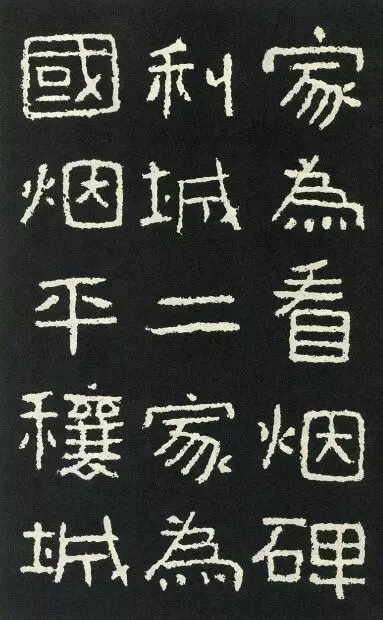 家為看烟碑
利城二家為
國烟平穰城